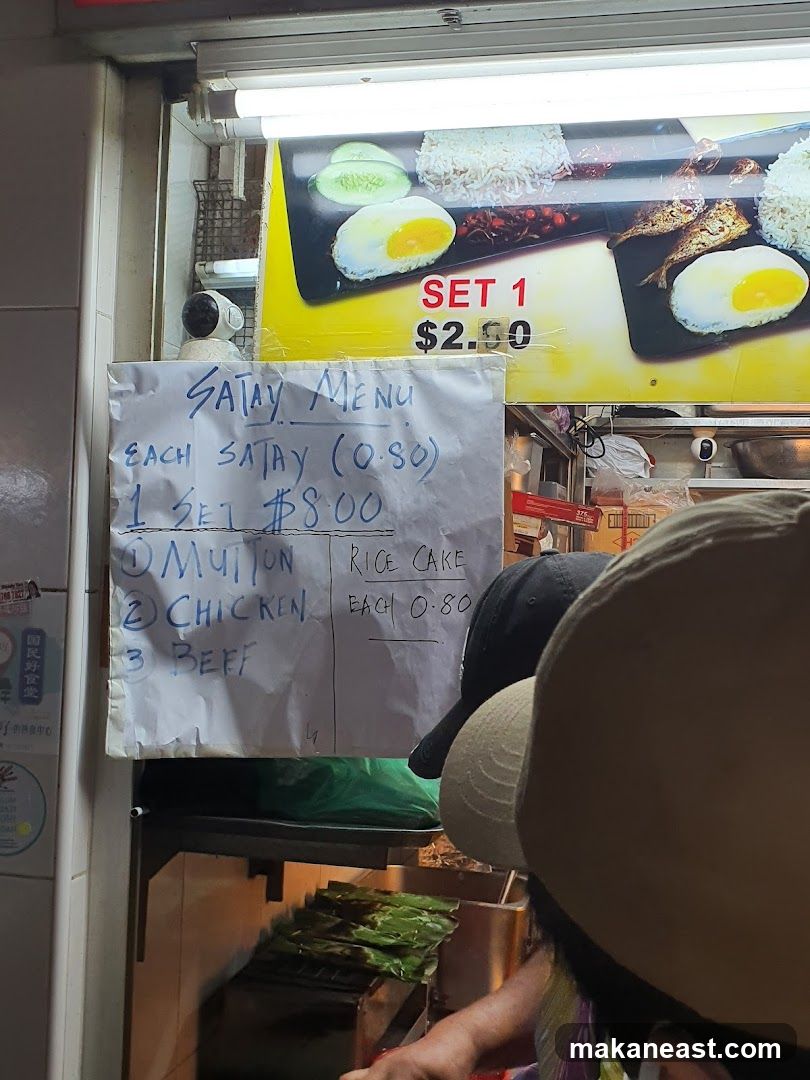 SET 1
$2.50
SATAY MENU
EACH SATAY (0.80)
1 SET $8.00
① MUTTON
② CHICKEN
3 BEEF
RICE CAKE
EACH 0.80
国民好食堂
makaneast.com